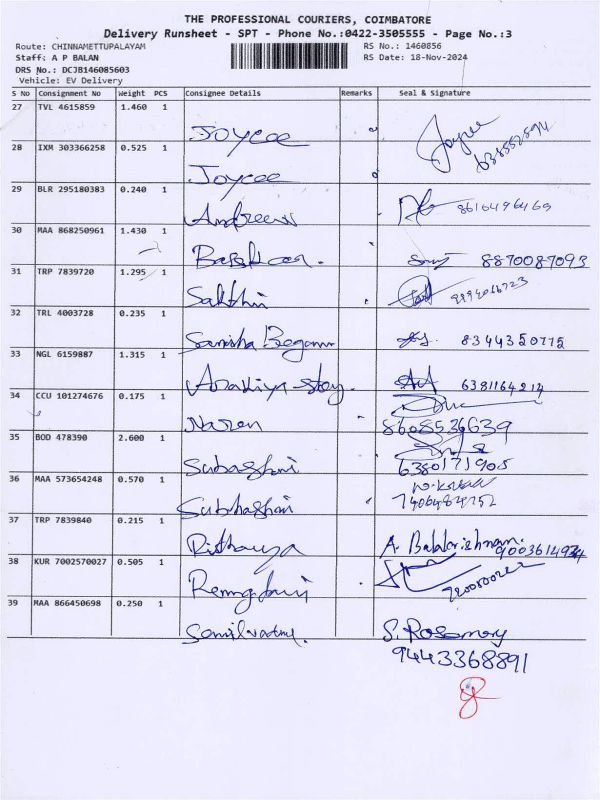 THE PROFESSIONAL COURIERS, COIMBATORE
Delivery Runsheet - SPT - Phone No.:0422-3505555 - Page No.:3
Route: CHINNAMETTUPALAYAM RS No.: 1460856
Staff: A P BALAN RS Date: 18-Nov-2024
DRS No.: DCJB146085603
Vehicle: EV Delivery
S No Consignment No Weight PCS Consignee Details Remarks Seal & Signature
27 TVL 4615859 1.460 1
Joycee Joycee
28 IXM 303366258 0.525 1
Joycee
29 BLR 295180383 0.240 1
Andrews 8610496469
30 MAA 868250961 1.430 1
8870087093
31 TRP 7839720 1.295 1
Sakthi
32 TRL 4003728 0.235 1
Samsha Begam 8344350775
33 NGL 6159887 1.315 1
Arokiya stoy. 6381164214
34 CCU 101274676 0.175 1
Naren 8608536639
35 BOD 478390 2.600 1
Subashini 6380171905
36 MAA 573654248 0.570 1
Subhashini 7406484752
37 TRP 7839840 0.215 1
A. Balakrishnan.
38 KUR 7002570027 0.505 1
39 MAA 866450698 0.250 1
S. Rosemary
9443368891